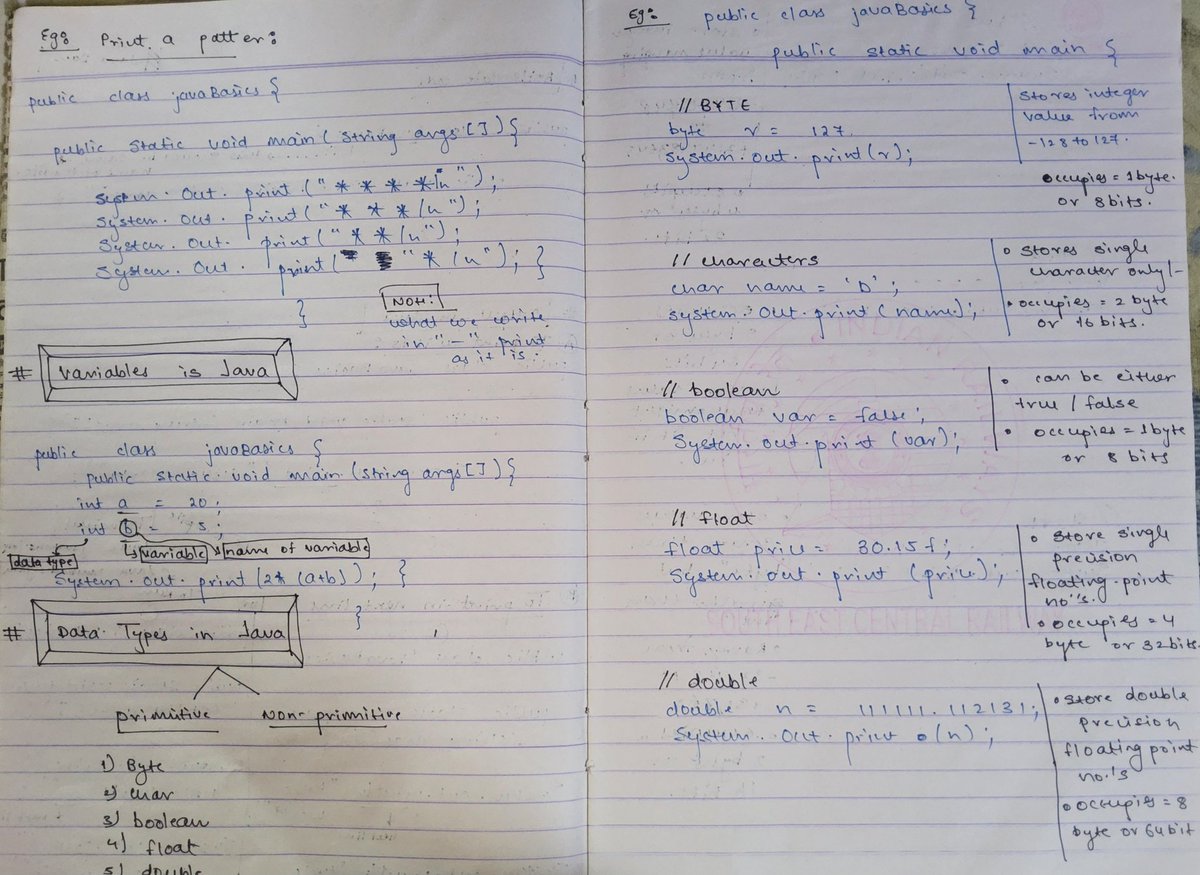 Eg:- Print a patter:-
public class javaBasics {
public static void main ( string args [ ] ) {
System. Out. print (" * * * * /n " ) ;
System. out. print (" * * * /n ") ;
System. Out. print (" * * /n ") ;
System. Out. print ( " * /n ") ; }
}
NOTE:
what we write
in " - " print
as it is.
# Variables is Java
public class javaBasics {
public static void main ( string args [ ] ) {
int a = 20 ;
int b = 5 ;
data type
variable name of variable
System. out. print (2* (a+b) ) ; }
}
# Data Types in Java
primitive Non-primitive
1) Byte
2) char
3) boolean
4) float
5) double
Eg:- public class javaBasics {
public static void main {
// BYTE
byte v = 127.
System. out. print (v) ;
Stores integer
value from
-128 to 127.
occupies = 1 byte.
or 8 bits.
// characters
char name = 'b' ;
system. Out. print ( name) ;
Stores single
character only/-
occupies = 2 byte
or 16 bits.
// boolean
boolean var = false ;
System. out. print (var) ;
can be either
true / false
occupies = 1 byte
or 8 bits
// float
float price = 30.15f ;
System. out. print (price) ;
Store single
precision
floating point
no"s.
occupies = 4
byte or 32 bits.
SOUTH EAST CENTRAL RAIL
// double
double n = 111111.112131 ;
System. Out. print . (n) ;
Store double
precision
floating point
no.'s
occupies = 8
byte or 64 bit